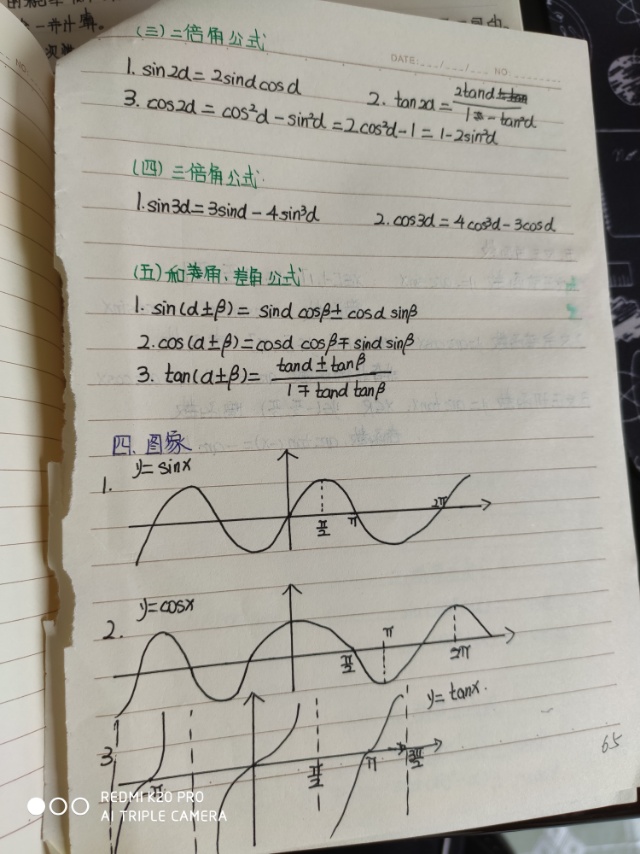 (三)二倍角公式
DATE:___/___/___ NO:________
1. sin2α=2sinαcosα
2. tan2α=2tanα/1-tan²α
3. cos2α=cos²α-sin²α=2cos²α-1=1-2sin²α
(四)三倍角公式.
1. sin3α=3sinα-4sin³α
2. cos3α=4cos³α-3cosα
(五)和角,差角公式
1. sin(α±β)=sinαcosβ±cosαsinβ
2. cos(α±β)=cosαcosβ∓sinαsinβ
3. tan(α±β)=tanα±tanβ/1∓tanαtanβ
四.图象
1. y=sinx
π/2 π 2π
2. y=cosx
π/2 π 2π
3. y=tanx.
π π/2 π 3π/2
65
REDMI K20 PRO
AI TRIPLE CAMERA